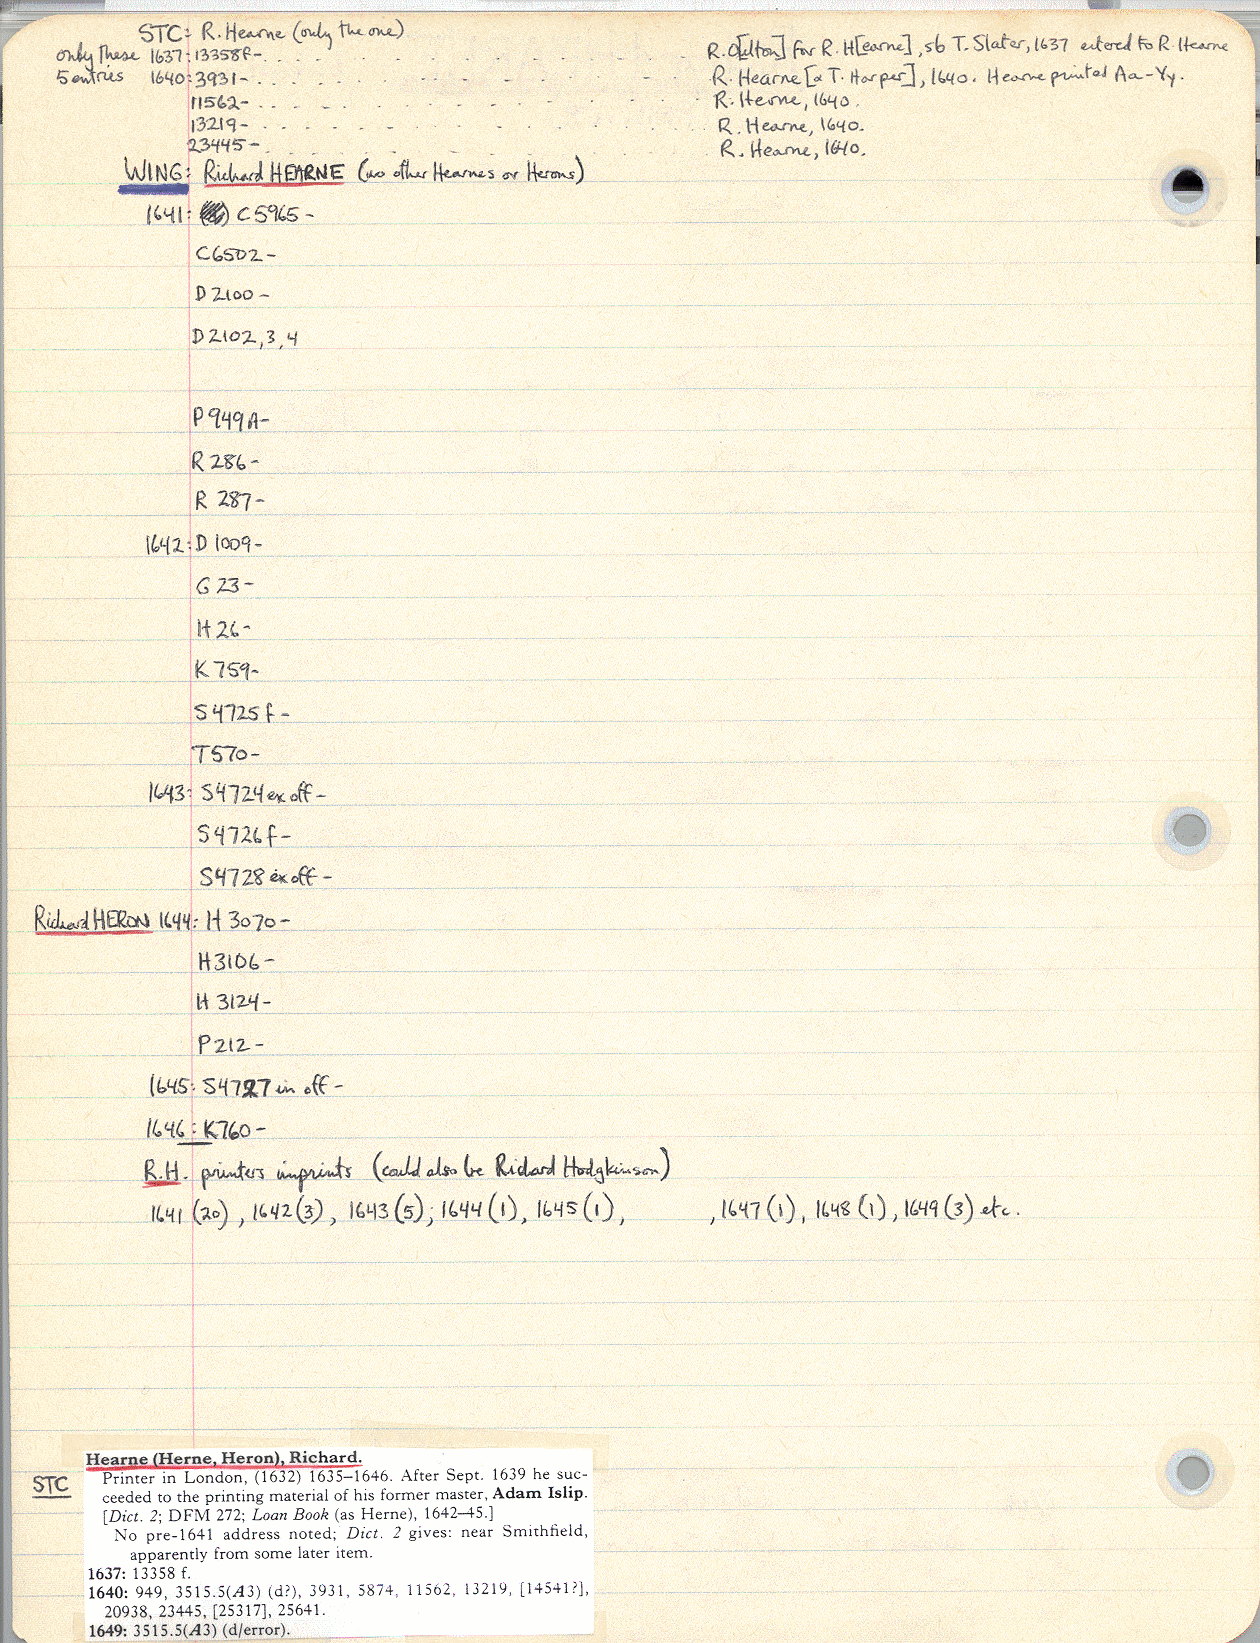 STC: R. Hearne (only the one)
only these 1637: 13358f- . . . . . . . . . . . R.O[ulton] for R. H[earne], sb T. Slater, 1637 entered to R. Hearne
5 entries 1640: 3931- . . . . . . . . . . . R. Hearne [& T. Harper], 1640. Hearne printed Aa-Yy.
11562- . . . . . . . . . . . R. Herne, 1640.
13219- . . . . . . . . . . . R. Hearne, 1640.
23445- . . . . . . . . . . . R. Hearne, 1640.
WING: Richard HEARNE (no other Hearnes or Herons)
1641: C5965-
C6502-
D2100-
D2102,3,4
P949A-
R286-
R 287-
1642: D1009-
G23-
H26-
K759-
S4725f-
T570-
1643: S4724 ex off-
S4726f-
S4728 ex off-
Richard HERON 1644: H3070-
H3106-
H3124-
P212-
1645: S4727 in off-
1646: K760-
R.H. printers imprints (could also be Richard Hodgkinson)
1641 (20), 1642(3), 1643(5); 1644(1), 1645(1), , 1647(1), 1648(1), 1649(3) etc.
Hearne (Herne, Heron), Richard.
Printer in London, (1632) 1635–1646. After Sept. 1639 he suc-
STC ceeded to the printing material of his former master, Adam Islip.
[Dict. 2; DFM 272; Loan Book (as Herne), 1642–45.]
No pre-1641 address noted; Dict. 2 gives: near Smithfield,
apparently from some later item.
1637: 13358 f.
1640: 949, 3515.5(A3) (d?), 3931, 5874, 11562, 13219, [14541?],
20938, 23445, [25317], 25641.
1649: 3515.5(A3) (d/error).